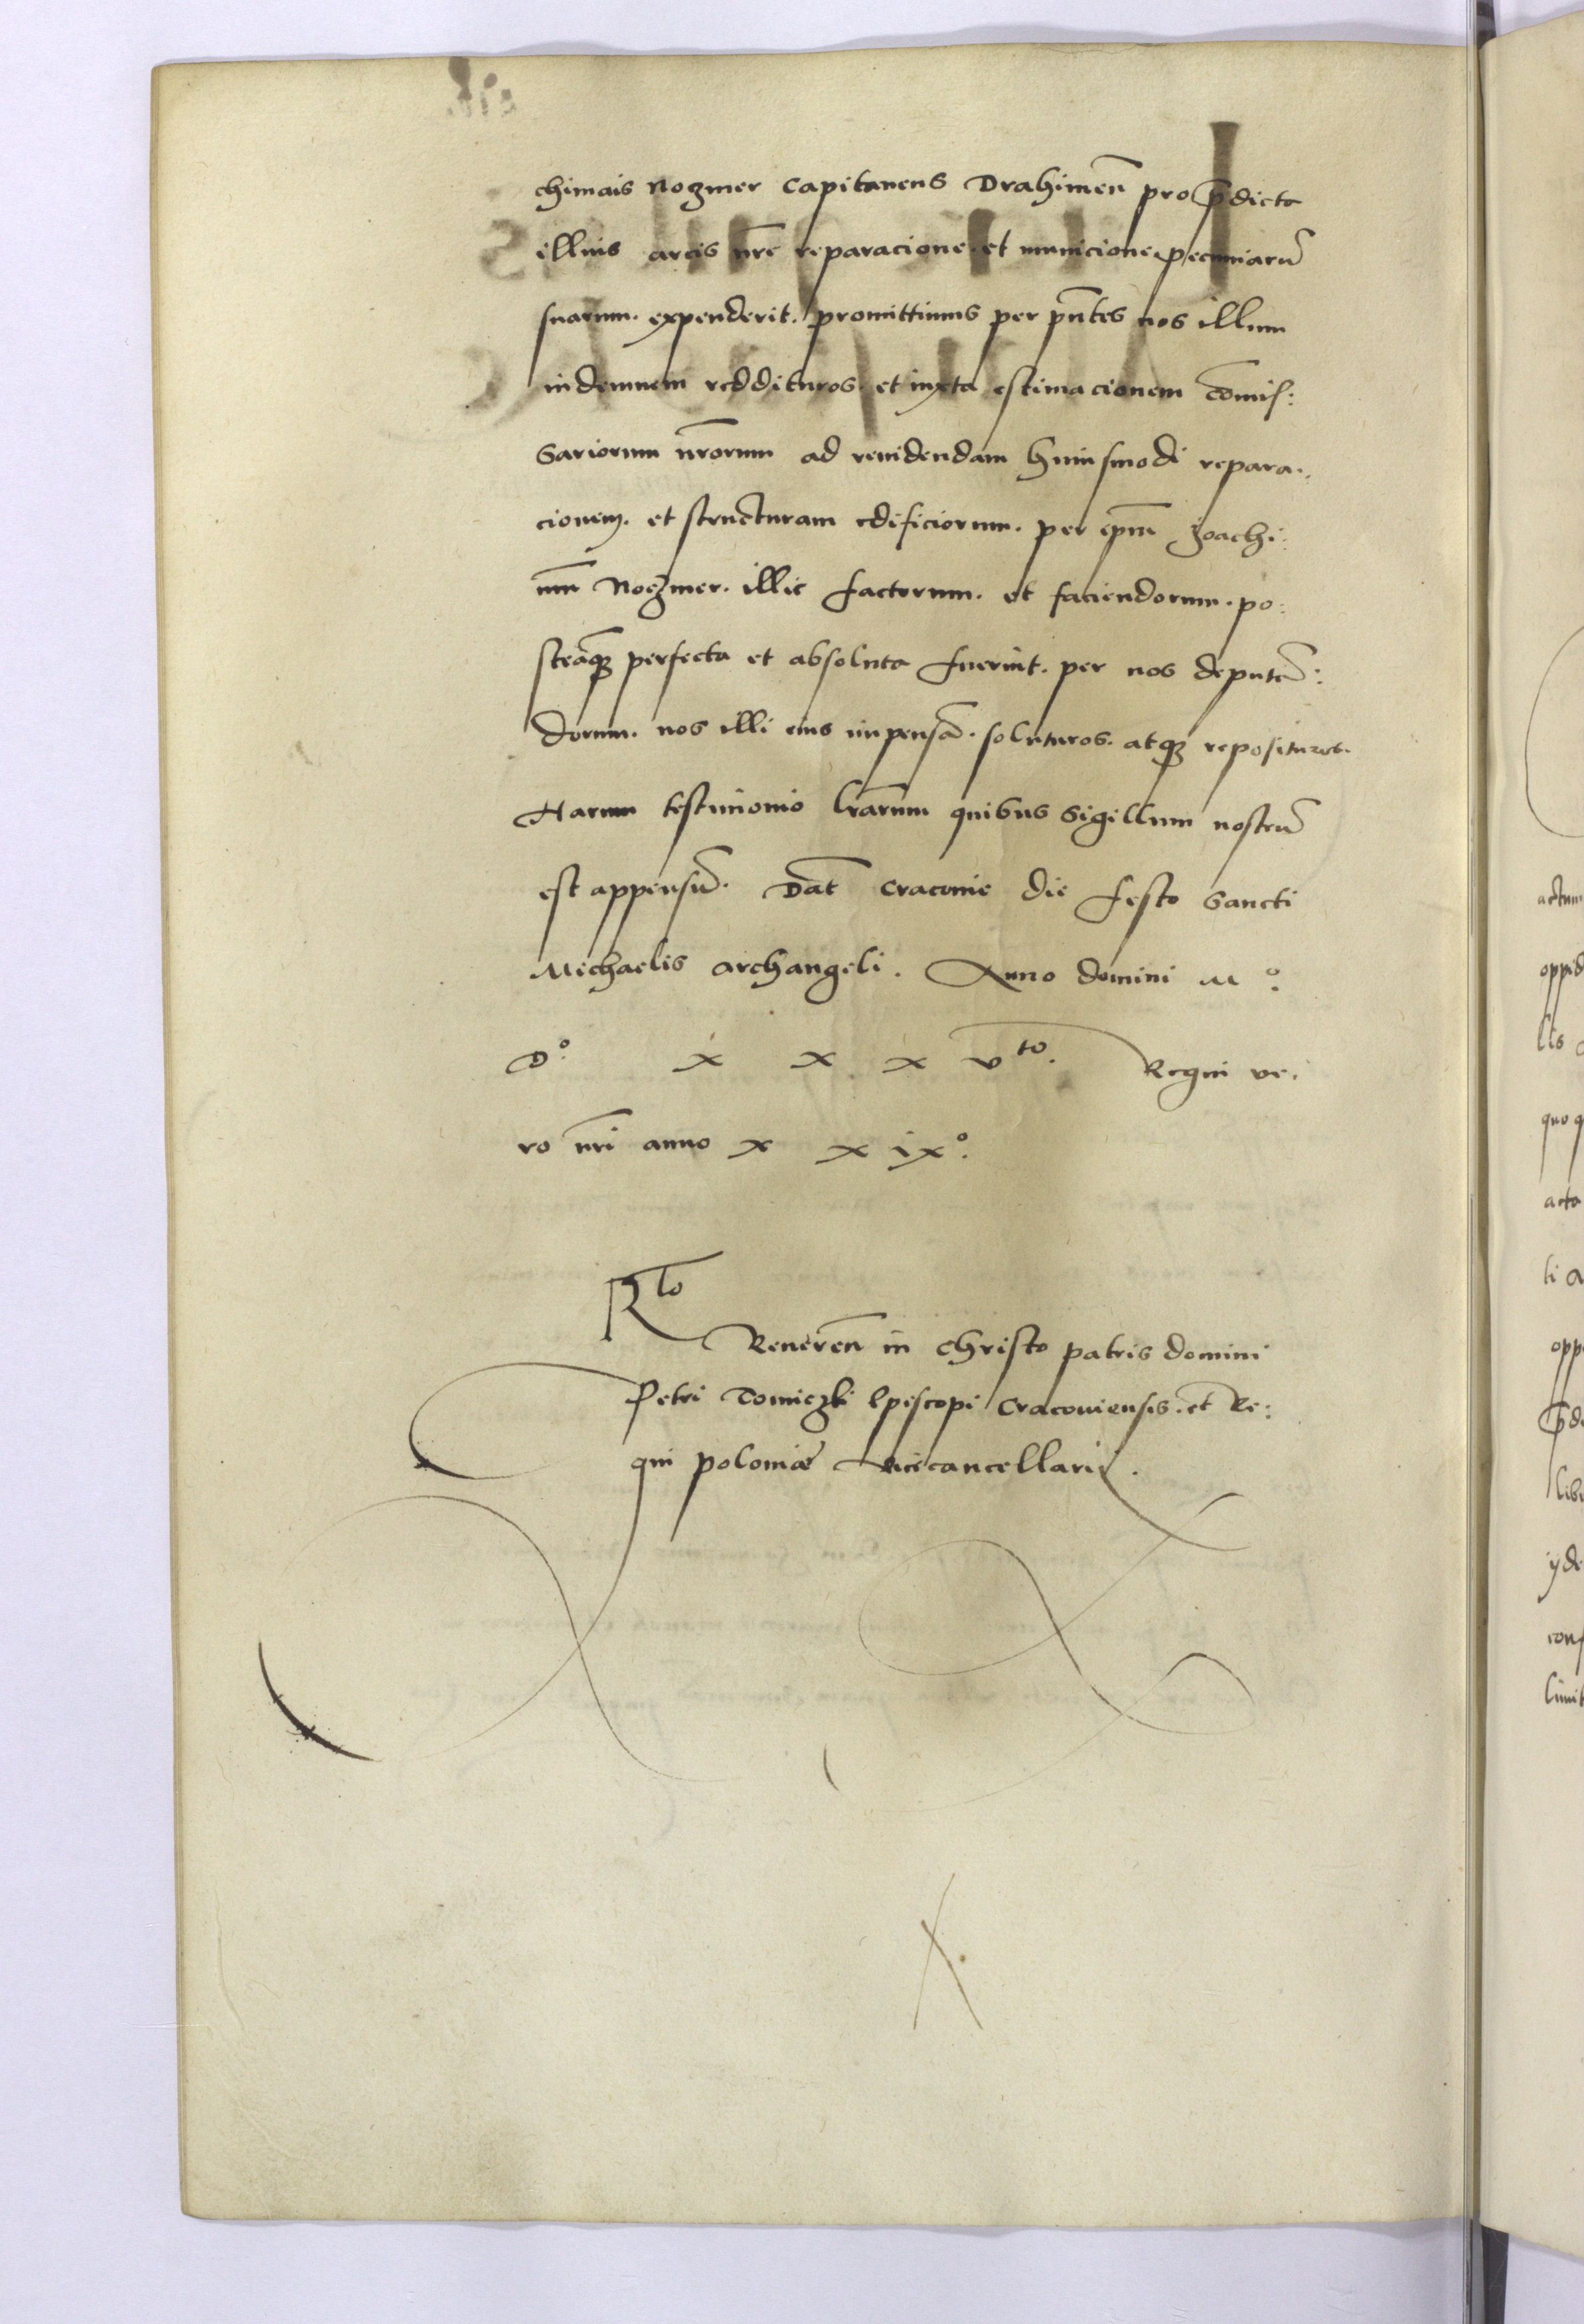 chimus Noszmer Capitaneus Drahimen̄ pro p̄dicta
illius arcis nr̄e reparacione. et municione pecuniarū
suarum. expenderit. promittimus per pn̄tes nos illum
indemnem reddituros. et iuxta estimacionem Com̄is:
sariorum nr̄orum ad reuidendam huiusmodi repara.
cionem. et structuram edificiorum. per ip̄m Joachi:
mū Noszmer. illic factorum. et faciendorum. po:
steaq̄ꝫ perfecta et absoluta fuerint. per nos deputā:
dorum. nos illi eius impensā. soluturos. atqꝫ reposituros.
Harum testimonio lr̄arum quibus Sigillum nostrū
est appensū. Dat̄ Cracouie die festo Sancti
Michaelis archangeli. Anno domini Mº.
Dº. x x x vto. Regni ve.
ro nr̄i anno x x ixº.
Rlo
Reueren̄ in Christo patris domini
Petri Tomiczki Episcopi Cracouiensis. et Re:
gni poloniæ Vicecancellarij.